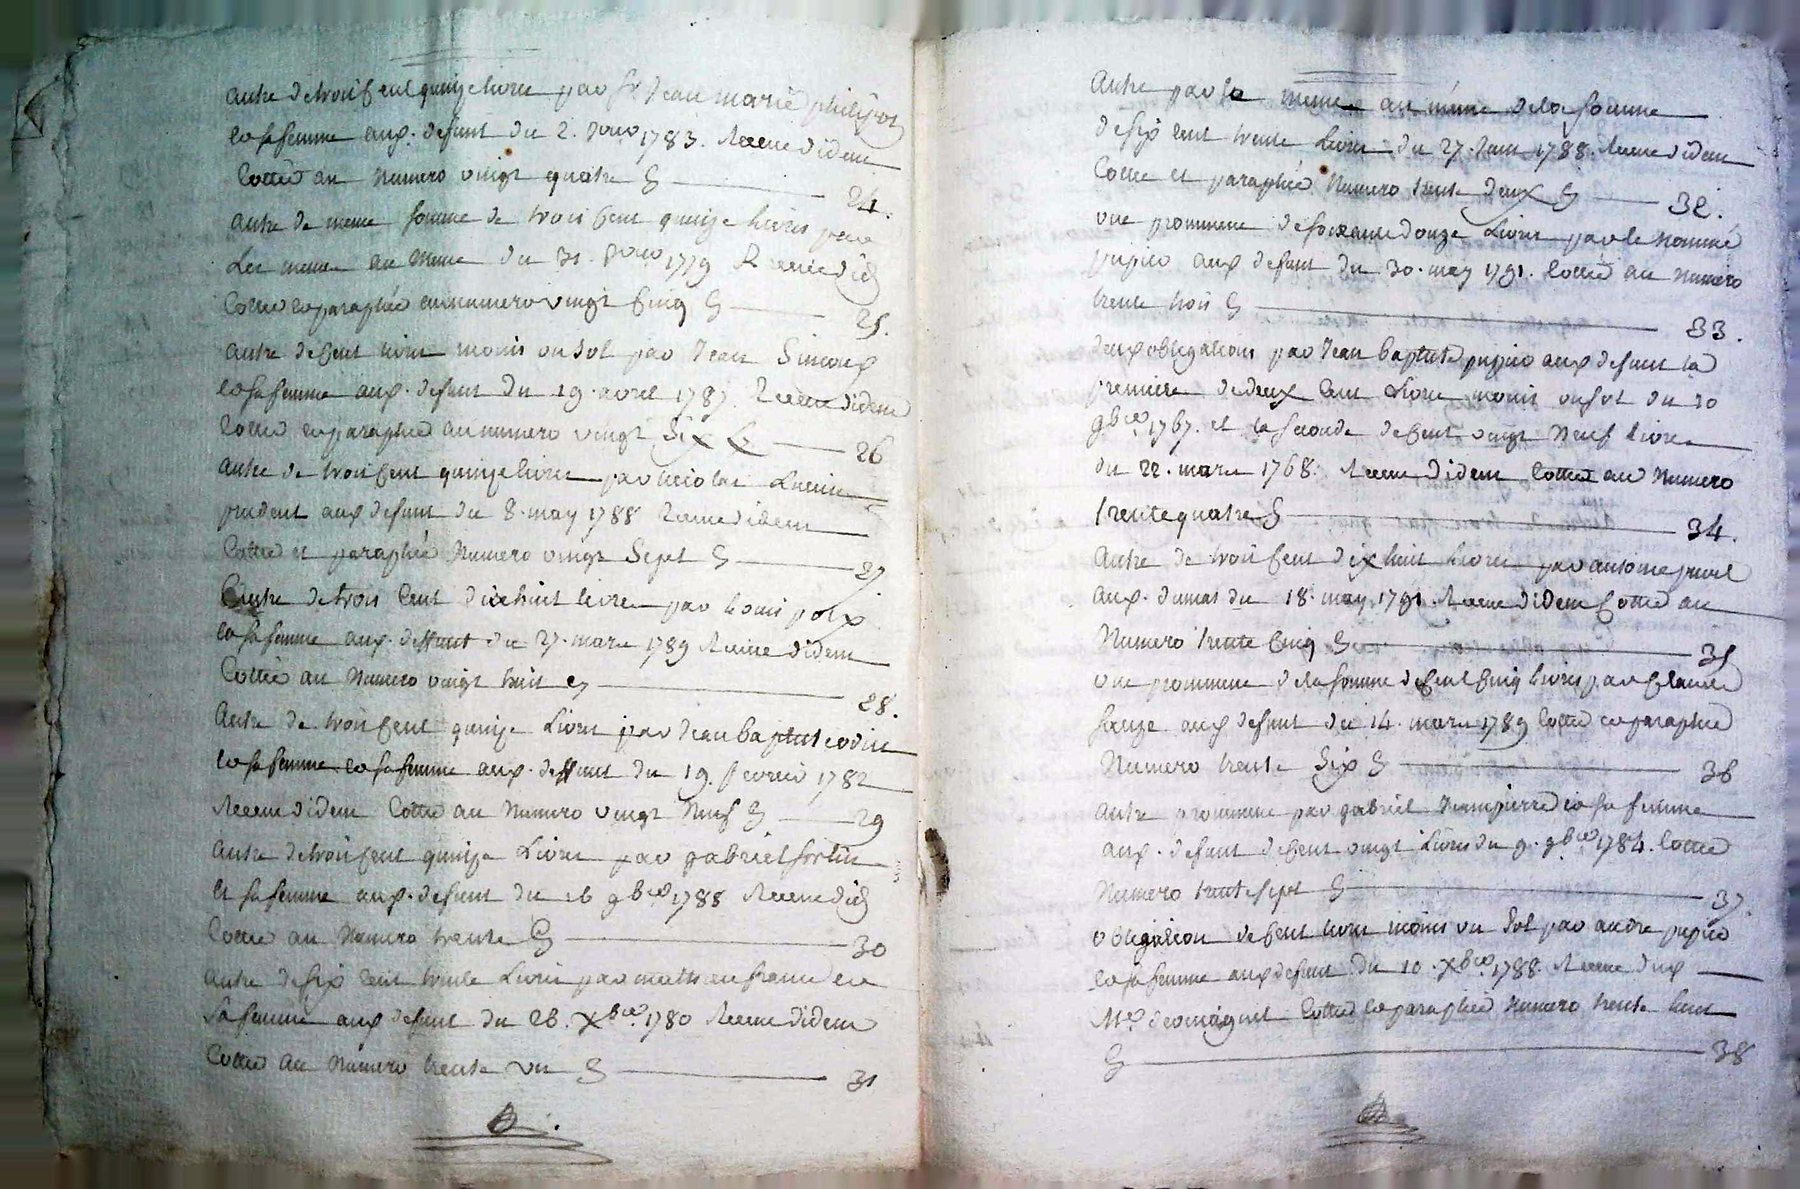 autre de trois cent quinze livres par sr Jean marie philipon
et sa femme aux. defunt du 2. 1783. Receue didem
Cottée au Numero vingt quatre 24.
autre de meme somme de trois cent quinze livres par
Les meme au meme du 31. 1779 Receue did
Cottée et paraphée au numero vingt Cinq 25.
autre de Cent livres moins un sol par Jean
et sa femme aux. defunt du 19. avril 1787 Receue didem
Cottée et paraphée au numero vingt Six 26
autre de trois Cent quinze livres par nicolas
prudent aux defunt du 8. may 1788 Receue didem
Cottée et paraphée Numero vingt Sept 27
autre de trois Cent dixhuit livres par Louis
et sa femme aux. deffunt du 27. mars 1789 Receue didem
Cottée au Numero vingt huit 28.
autre de trois Cent quinze Livres par Jean baptiste odin
et sa femme et sa femme aux. deffunt du 19. fevrier 1782
Receue didem Cottée au Numero vingt Neuf 29
autre de trois Cent quinze Livres par gabriel fortin
et sa femme aux. defunt du 16 9bre 1788 Receue did
Cottée au Numero trente 30
autre de six Cent trente Livres par mathieu et
sa femme aux defunt du 28. Xbre 1780 Receue didem
Cottée au Numero trente un 31
autre par le meme au meme de la somme
de six cent trente Livres du 27. 1788. Receue didem
Cottée et paraphée Numero trente deux 32.
une promesse de soixante douze Livres par le nommé
pupier aux defunt du 30. may 1791. Cottée au numero
trente trois 33.
deux obligations par Jean baptiste pupier aux defunt la
premiere de deux Cent Livres moins un sol du 20
9bre 1767. et la seconde de Cent vingt Neuf livres
du 22. mars 1768. Receue didem Cottée au Numero
trente quatre 34.
autre de trois Cent dix huit livres par antoine
aux. du 18. may 1791. Receue didem Cottée au
Numero trente Cinq 35
une promesse de la somme de Cent Cinq livres par Claude
aux defunt du 14. mars 1789 Cottée et paraphée
Numero trente Six 36
autre promesse par gabriel Jeanpierre et sa femme
aux. defunt de Cent vingt Livres du 9. 9bre 1784. Cottée
Numero trente sept 37.
obligation de Cent livres moins un Sol par andre pupier
et sa femme aux defunt du 10. Xbre 1788 Receue
Me Cottée et paraphée Numero trente huit
38